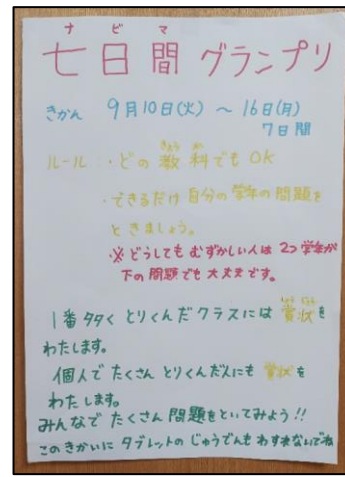 ナビマ
七日間グランプリ
きかん 9月10日(火) ~ 16日(月)
7日間
ルール ・どの教科でもOK
・できるだけ自分の学年の問題を
ときましょう。
※どうしてもむずかしい人は2つ学年が
下の問題でも大丈夫です。
1番多くとりくんだクラスには賞状を
わたします。
個人でたくさんとりくんだ人にも賞状を
わたします。
みんなでたくさん問題をといてみよう!!
このきかいにタブレットのじゅうでんもわすれないでね